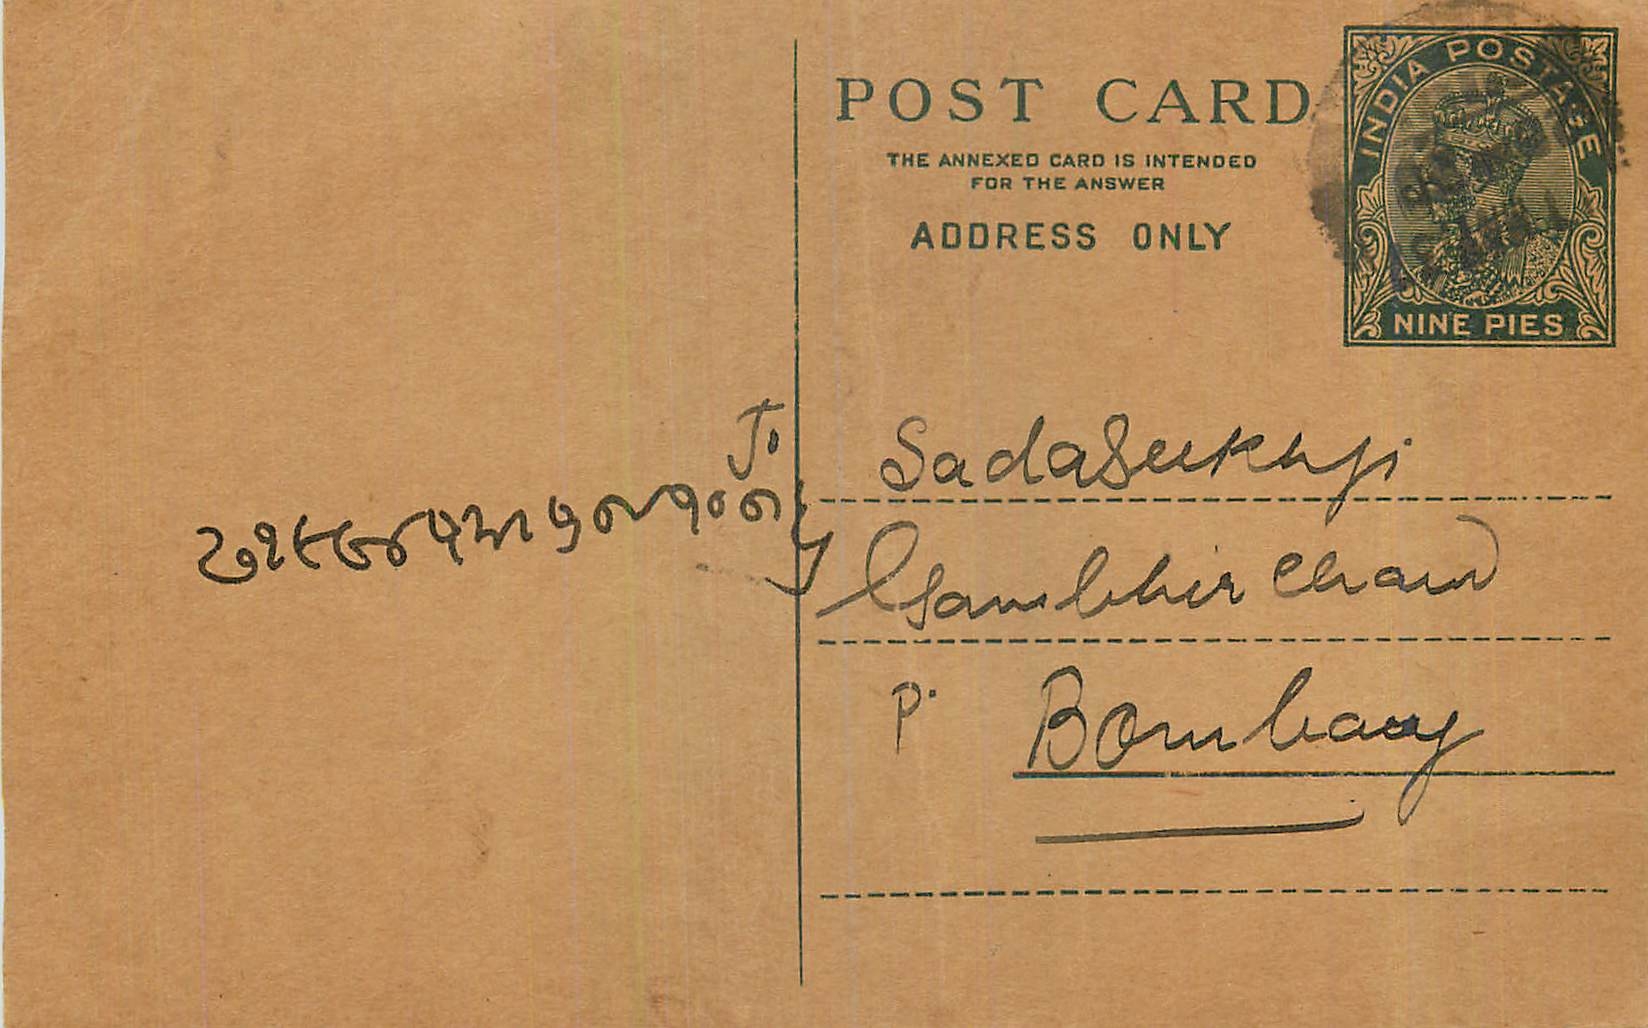 POST CARD
THE ANNEXED CARD IS INTENDED
FOR THE ANSWER
ADDRESS ONLY
INDIA POSTAGE
NINE PIES
To
Sadasukhji
Gambhir Chand
P. Bombay